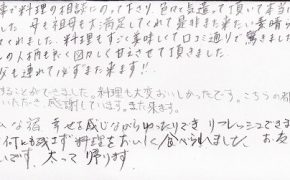 事や料理の相談にのって下さり、色々気遣って頂いて本当に
した。母も祖母も大満足してくれて是非また来たい素晴ら
てくれました。料理もすごく美味しくて口コミ通りで驚きました
の人柄も良く図々しく甘えさせて頂きました。
も連れて必ずまた来ます!!
することができました。料理も大変おいしかったです。こちらの都
いただき、感謝しています。また来ます。
な宿 幸せを感じながらゆったりでき リフレッシュできま
何も残さず料理をおいしく食べられました。お
いです。太って帰ります。